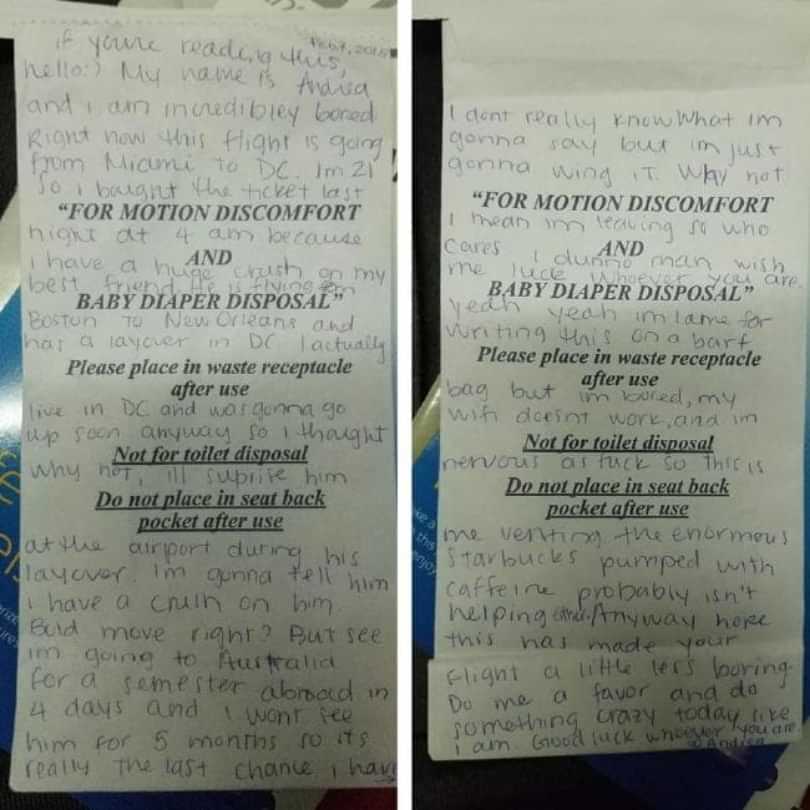 if youre reading this, Feb 7, 2015
hello:) My name is Andrea
and i am incredibley bored
Right now this flight is going
from Miami to DC. Im 21
So i baught the ticket last
"FOR MOTION DISCOMFORT
night at 4 am because
AND
i have a huge crush on my
best friend. He is flying from
BABY DIAPER DISPOSAL"
Boston To New Orleans and
has a layover in DC I actually
Please place in waste receptacle
after use
live in DC and was gonna go
up soon anyway so i thought
Not for toilet disposal
why not, ill suprise him
Do not place in seat back
pocket after use
at the airport during his
layover. Im gonna tell him
i have a crush on him.
Bold move right? But see
im going to Australia
for a semester abroad in
4 days and i wont see
him for 5 months so its
really the last chance i have
I dont really know what im
gonna say but im just
gonna wing it. Why not
"FOR MOTION DISCOMFORT
I mean im leaving so who
AND
cares. I dunno man wish
me luck whoever you are.
BABY DIAPER DISPOSAL"
Yeah yeah im lame for
writing this on a barf
Please place in waste receptacle
after use
bag but im bored, my
wifi doesnt work, and im
Not for toilet disposal
nervous as fuck so this is
Do not place in seat back
pocket after use
me venting. the enormous
Starbucks pumped with
caffeine probably isn't
helping either. Anyway hope
this has made your
flight a little less boring.
Do me a favor and do
something crazy today like
i am. Good luck whoever you are
Andrea